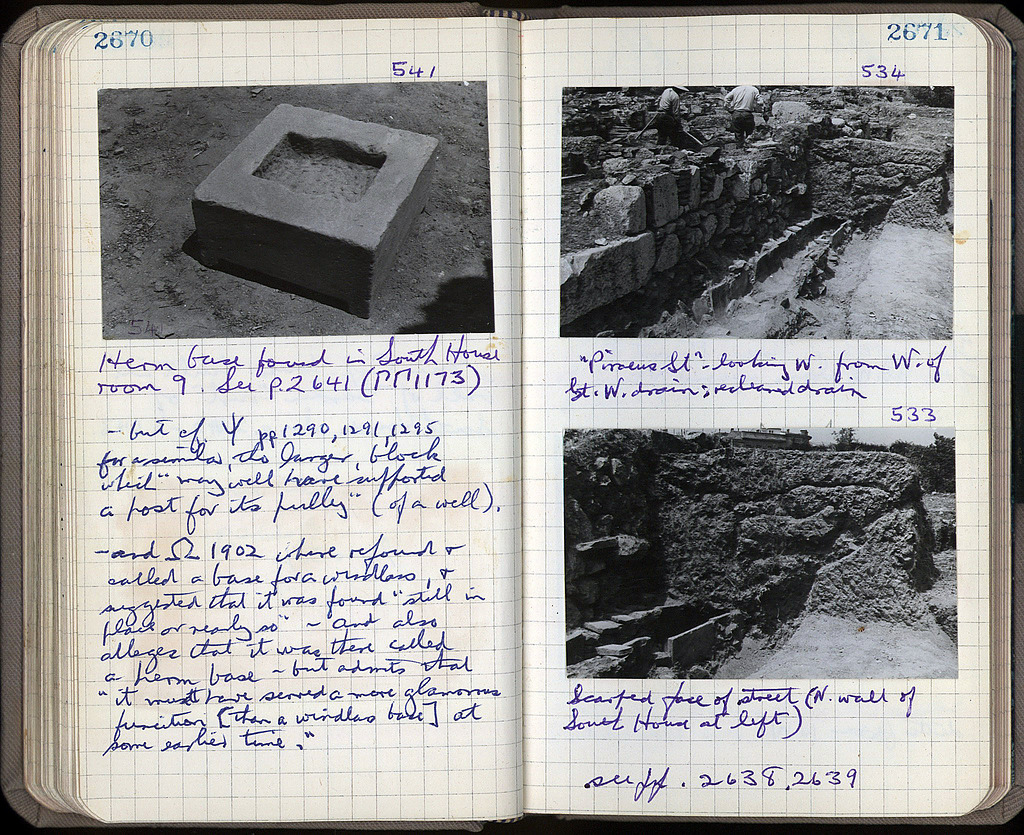 2670
541
541
Herm base found in South House
room 9. See p. 2641 (ΠΠ1173)
- but cf. Ψ pp 1290, 1291, 1295
for a similar, tho larger, block
which "may well have supported
a post for its pulley" (of a well).
- and Ω 1902 where refound +
called a base for a windlass, +
suggested that it was found "still in
place or nearly so" - and also
alleges that it was there called
a herm base - but admits that
"it must have served a more glamorous
function [than a windlass base] at
some earlier time."
2671
534
"Piraeus St" - looking W. from W. of
St. W. drain; and drain
533
Scarped face of street (N. wall of
South House at left)
see pp. 2638, 2639